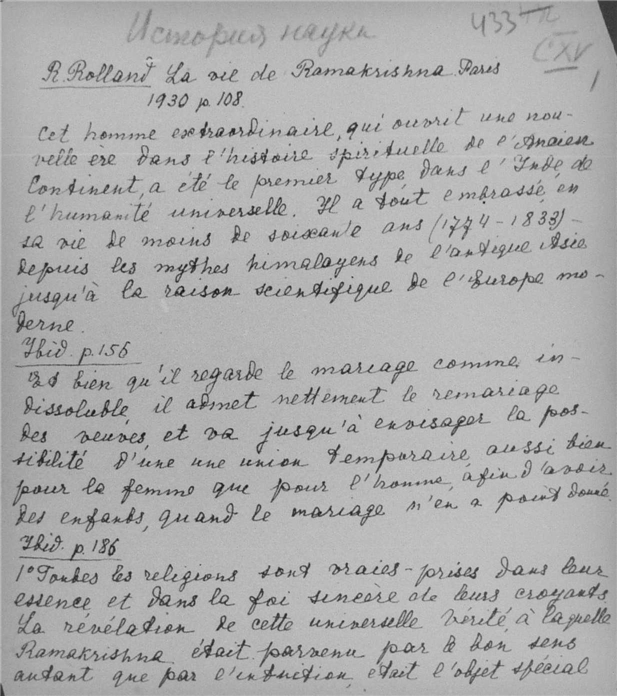 История науки
433
CXV
1
R. Rolland La vie de Ramakrishna Paris
1930 p. 108.
Cet homme extraordinaire, qui ouvrit une nou-
velle ère dans l'histoire spirituelle de l'Ancien
Continent, a été le premier type dans l'Inde, de
l'humanité universelle. Il a tout embrassé, en
sa vie de moins de soixante ans (1774-1833) -
depuis les mythes himalayens de l'antique Asie
jusqu'à la raison scientifique de l'Europe mo-
derne.
Ibid. p. 156
Et bien qu'il regarde le mariage comme in-
dissoluble, il admet nettement le remariage
des veuves, et va jusqu'à envisager la pos-
sibilité d'une une union temporaire aussi bien
pour la femme que pour l'homme, afin d'avoir
des enfants, quand le mariage n'en a point donné.
Ibid. p. 186
1° Toutes les religions sont vraies - prises dans leur
essence et dans la foi sincère de leurs croyants
La révélation de cette universelle vérité à laquelle
Ramakrishna était parvenu par le bon sens
autant que par l'intuition, était l'objet spécial